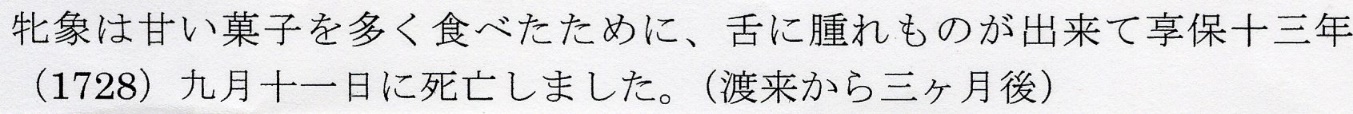 牝象は甘い菓子を多く食べたために、舌に腫れものが出来て享保十三年
（1728）九月十一日に死亡しました。（渡来から三ヶ月後）